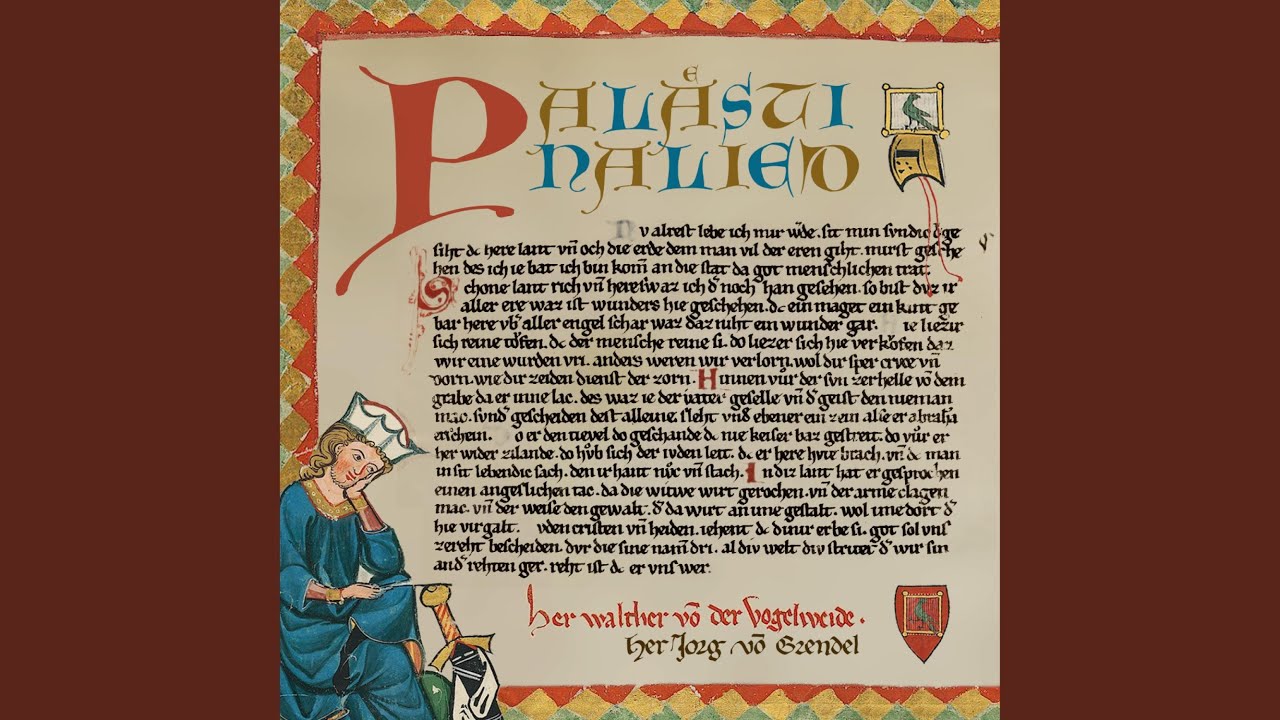 PALÅSTI
NALIED
Nv alrest lebe ich mir wͦde. sit min svndic oͮge
siht dc here lant vn̄ och die erde dem man vil der eren giht. mirst gesche
hen des ich ie bat ich bin kom̄ an die stat da got menschlichen trat.
Schone lant rich vn̄ here swaz ich d̾ noch han gesehen. so bist dvz ir
aller ere waz ist wunders hie geschehen. dc ein maget ein kint ge
bar here vb̾ aller engel schar waz daz niht ein wunder gar. Hie liezir
sich reine toͮfen. dc der mensche reine si. do liezer sich hie verkoͮfen daz
wir eine wurden vri. anders weren wir verlorn. wol dir sper crvce vn̄
dorn. wie dir zeiden dienst der zorn. Hinnen vuͦr der svn zer helle vō dem
grabe da er inne lac. des waz ie der vater geselle vn̄ d̾ geist den nieman
mac. svnd̾ gescheiden dest alleine. sleht vn̄ ebener ein zein alse er abrahā
erschein. Do er den tievel do geschande dc nie keiser baz gestreit. do vuͦr er
her wider zilande. do huͦb sich der ivden leit. dc er here hvte brach. vn̄ dc man
in sit lebendic sach. den ir hant sluͦc vn̄ stach. In diz lant hat er gesprochen
einen angeslichen tac. da die witwe wirt gerochen. vn̄ der arme clagen
mac. vn̄ der weise den gewalt. d̾ da wirt an ime gestalt. wol ime dort d̾
hie virgalt. vden cristen vn̄ heiden. iehent dc dinir erbe si. got sol vns
ze reht bescheiden. dvr die sine nam̄ dri. al div welt div stritet d̾ wir sin
an d̾ rehten ger. reht ist dc er vns wer.
her walther vō der Vogelweide.
her Jorg vō Grendel